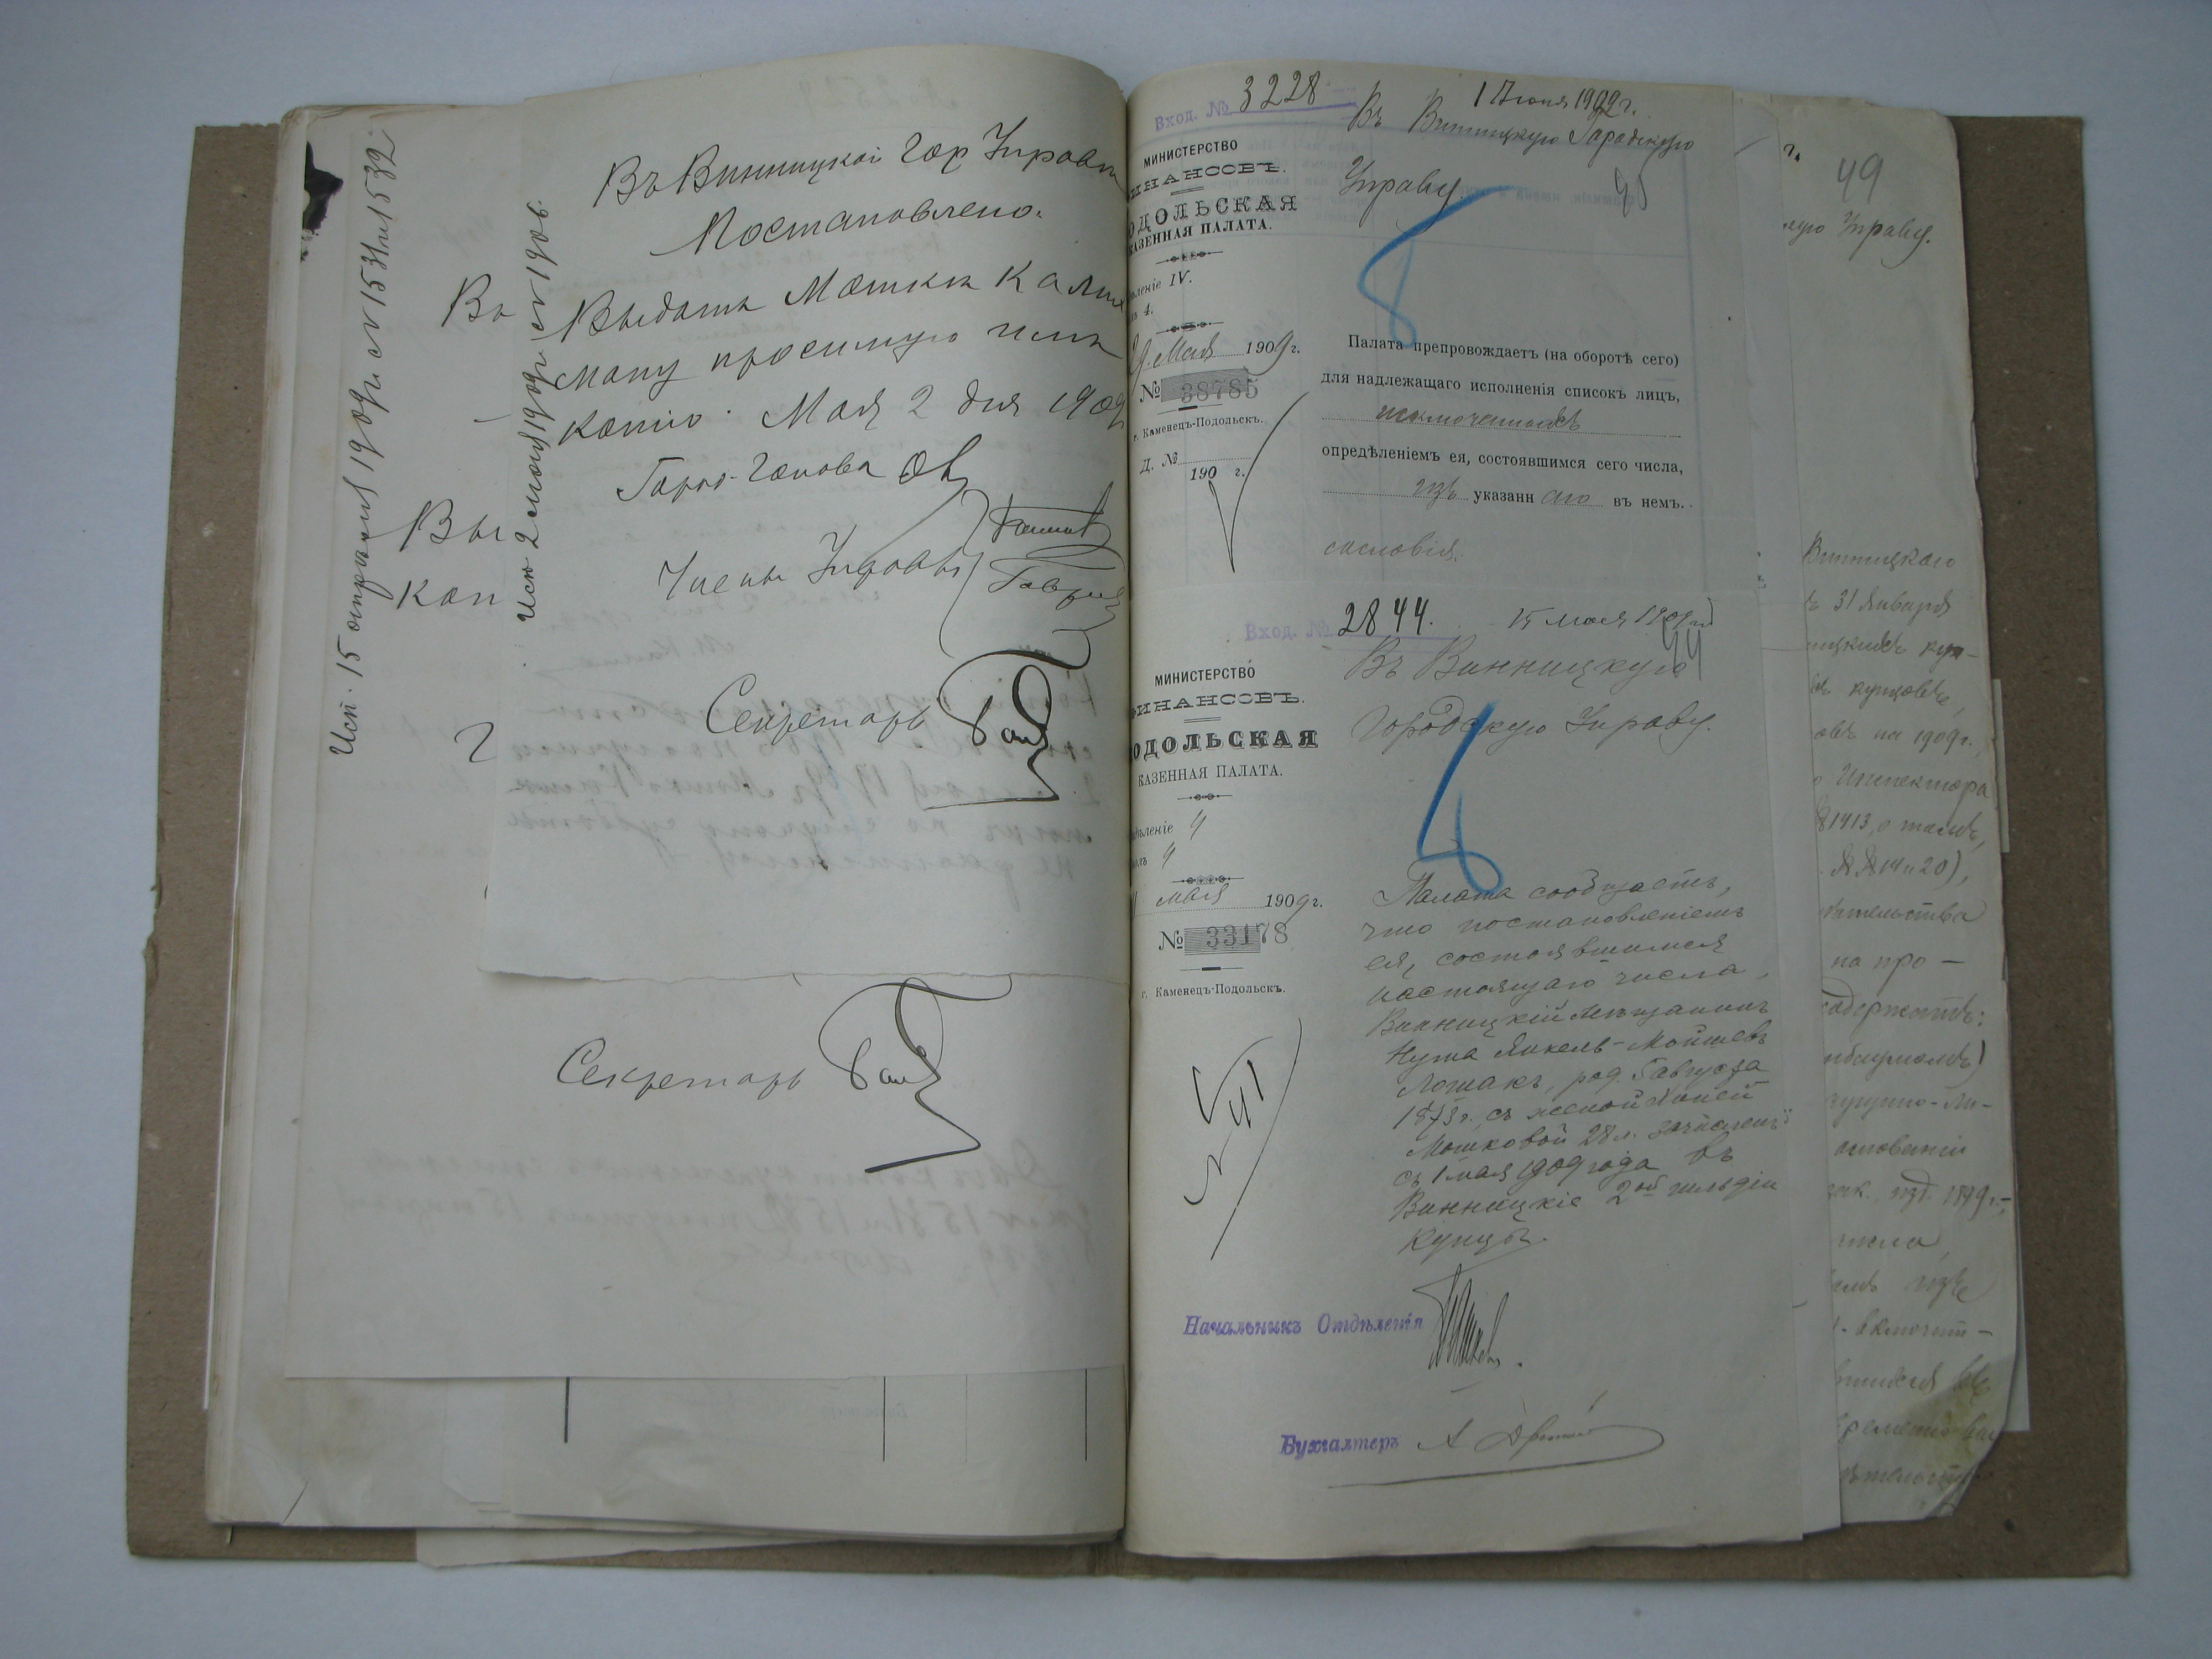 Исп. 15 апрѣля 1909 г. № 1531 и 1532
Въ
Вы
коп
Исп. 2 мая 1909 г. № 1906.
Въ Винницкой Гор. Управѣ
Постановлено:
Выдать Мошкѣ Калих
ману просимую имъ
копію. Мая 2 дня 1909
Город. Голова
Члены Управы
Секретарь
Секретарь
Вход. № 3228
1 Іюня 1909 г.
МИНИСТЕРСТВО
ИНАНСОВЪ.
ОДОЛЬСКАЯ
КАЗЕННАЯ ПАЛАТА.
леніе IV.
4.
9 Мая 1909 г.
№ 38785
г. Каменецъ-Подольскъ.
Д. №
190 г.
Въ Винницкую Городскую
Управу.
Палата препровождаетъ (на оборотѣ сего)
для надлежащаго исполненія списокъ лицъ,
исключенныхъ
опредѣленіемъ ея, состоявшимся сего числа,
изъ указанн аго въ немъ.
сословія.
Вход. № 2844.
15 мая 1909 г.
МИНИСТЕРСТВО
ИНАНСОВЪ.
ОДОЛЬСКАЯ
КАЗЕННАЯ ПАЛАТА.
ѣленіе 4
4
мая 1909 г.
№ 33178
г. Каменецъ-Подольскъ.
Въ Винницкую
Городскую Управу.
Палата сообщаетъ,
что постановленіемъ
ея, состоявшимся
настоящаго числа,
Винницкій мѣщанинъ
Нута Янкель-Мойшевъ
Лошакъ, род. 5 августа
1873 г., съ женой Ханей
Мошковой 28 л. зачисленъ
съ 1 мая 1909 года въ
Винницкіе 2ой гильдіи
Купцы.
Начальникъ Отдѣленія
Бухгалтеръ
49
ую Управу.
Винницкаго
31 Января
ницкихъ куп-
купцовъ,
овъ на 1909 г.,
Инспектора
1413, о томъ,
№№ 14 и 20),
тельства
на про-
содержитъ:
основаніи
изд. 1899 г.,
числа,
изъ
включит-